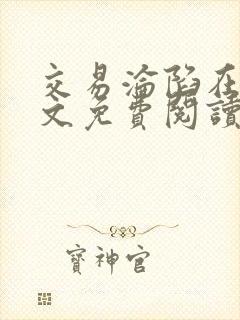 交易淪陷在
文免費閱讀
寶神官